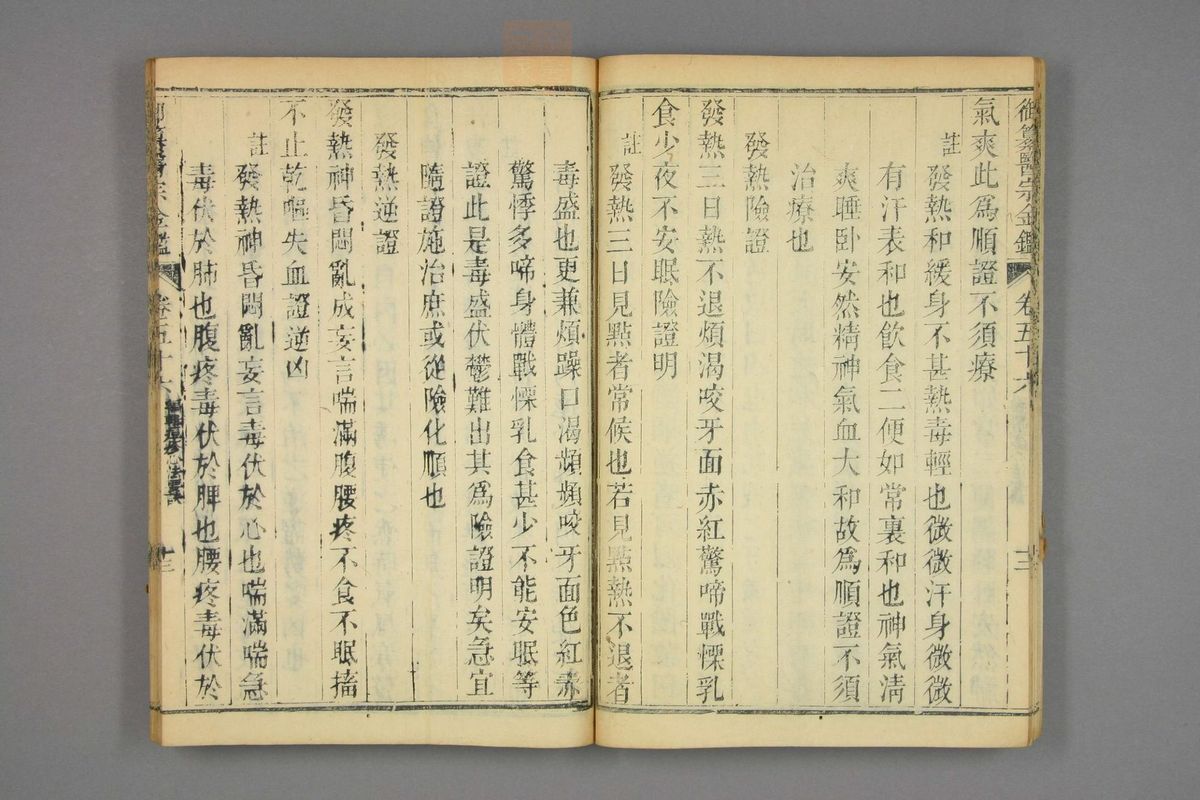 御纂醫宗金鑑 卷五十六 十三
氣爽此爲順證不須療
註 發熱和緩身不甚熱毒輕也微微汗身微微
有汗表和也飲食二便如常裏和也神氣淸
爽睡卧安然精神氣血大和故爲順證不須
治療也
發熱險證
發熱三日熱不退煩渴咬牙面赤紅驚啼戰慄乳
食少夜不安眠險證明
註 發熱三日見點者常候也若見點熱不退者
毒盛也更兼煩躁口渴頻頻咬牙面色紅赤
驚悸多啼身體戰慄乳食甚少不能安眠等
證此是毒盛伏鬱難出其爲險證明矣急宜
隨證施治庶或從險化順也
發熱逆證
發熱神昏悶亂成妄言喘滿腹腰疼不食不眠搐
不止乾嘔失血證逆凶
註 發熱神昏悶亂妄言毒伏於心也喘滿喘急
毒伏於肺也腹疼毒伏於脾也腰疼毒伏於
御纂醫宗金鑑 卷五十六 十三